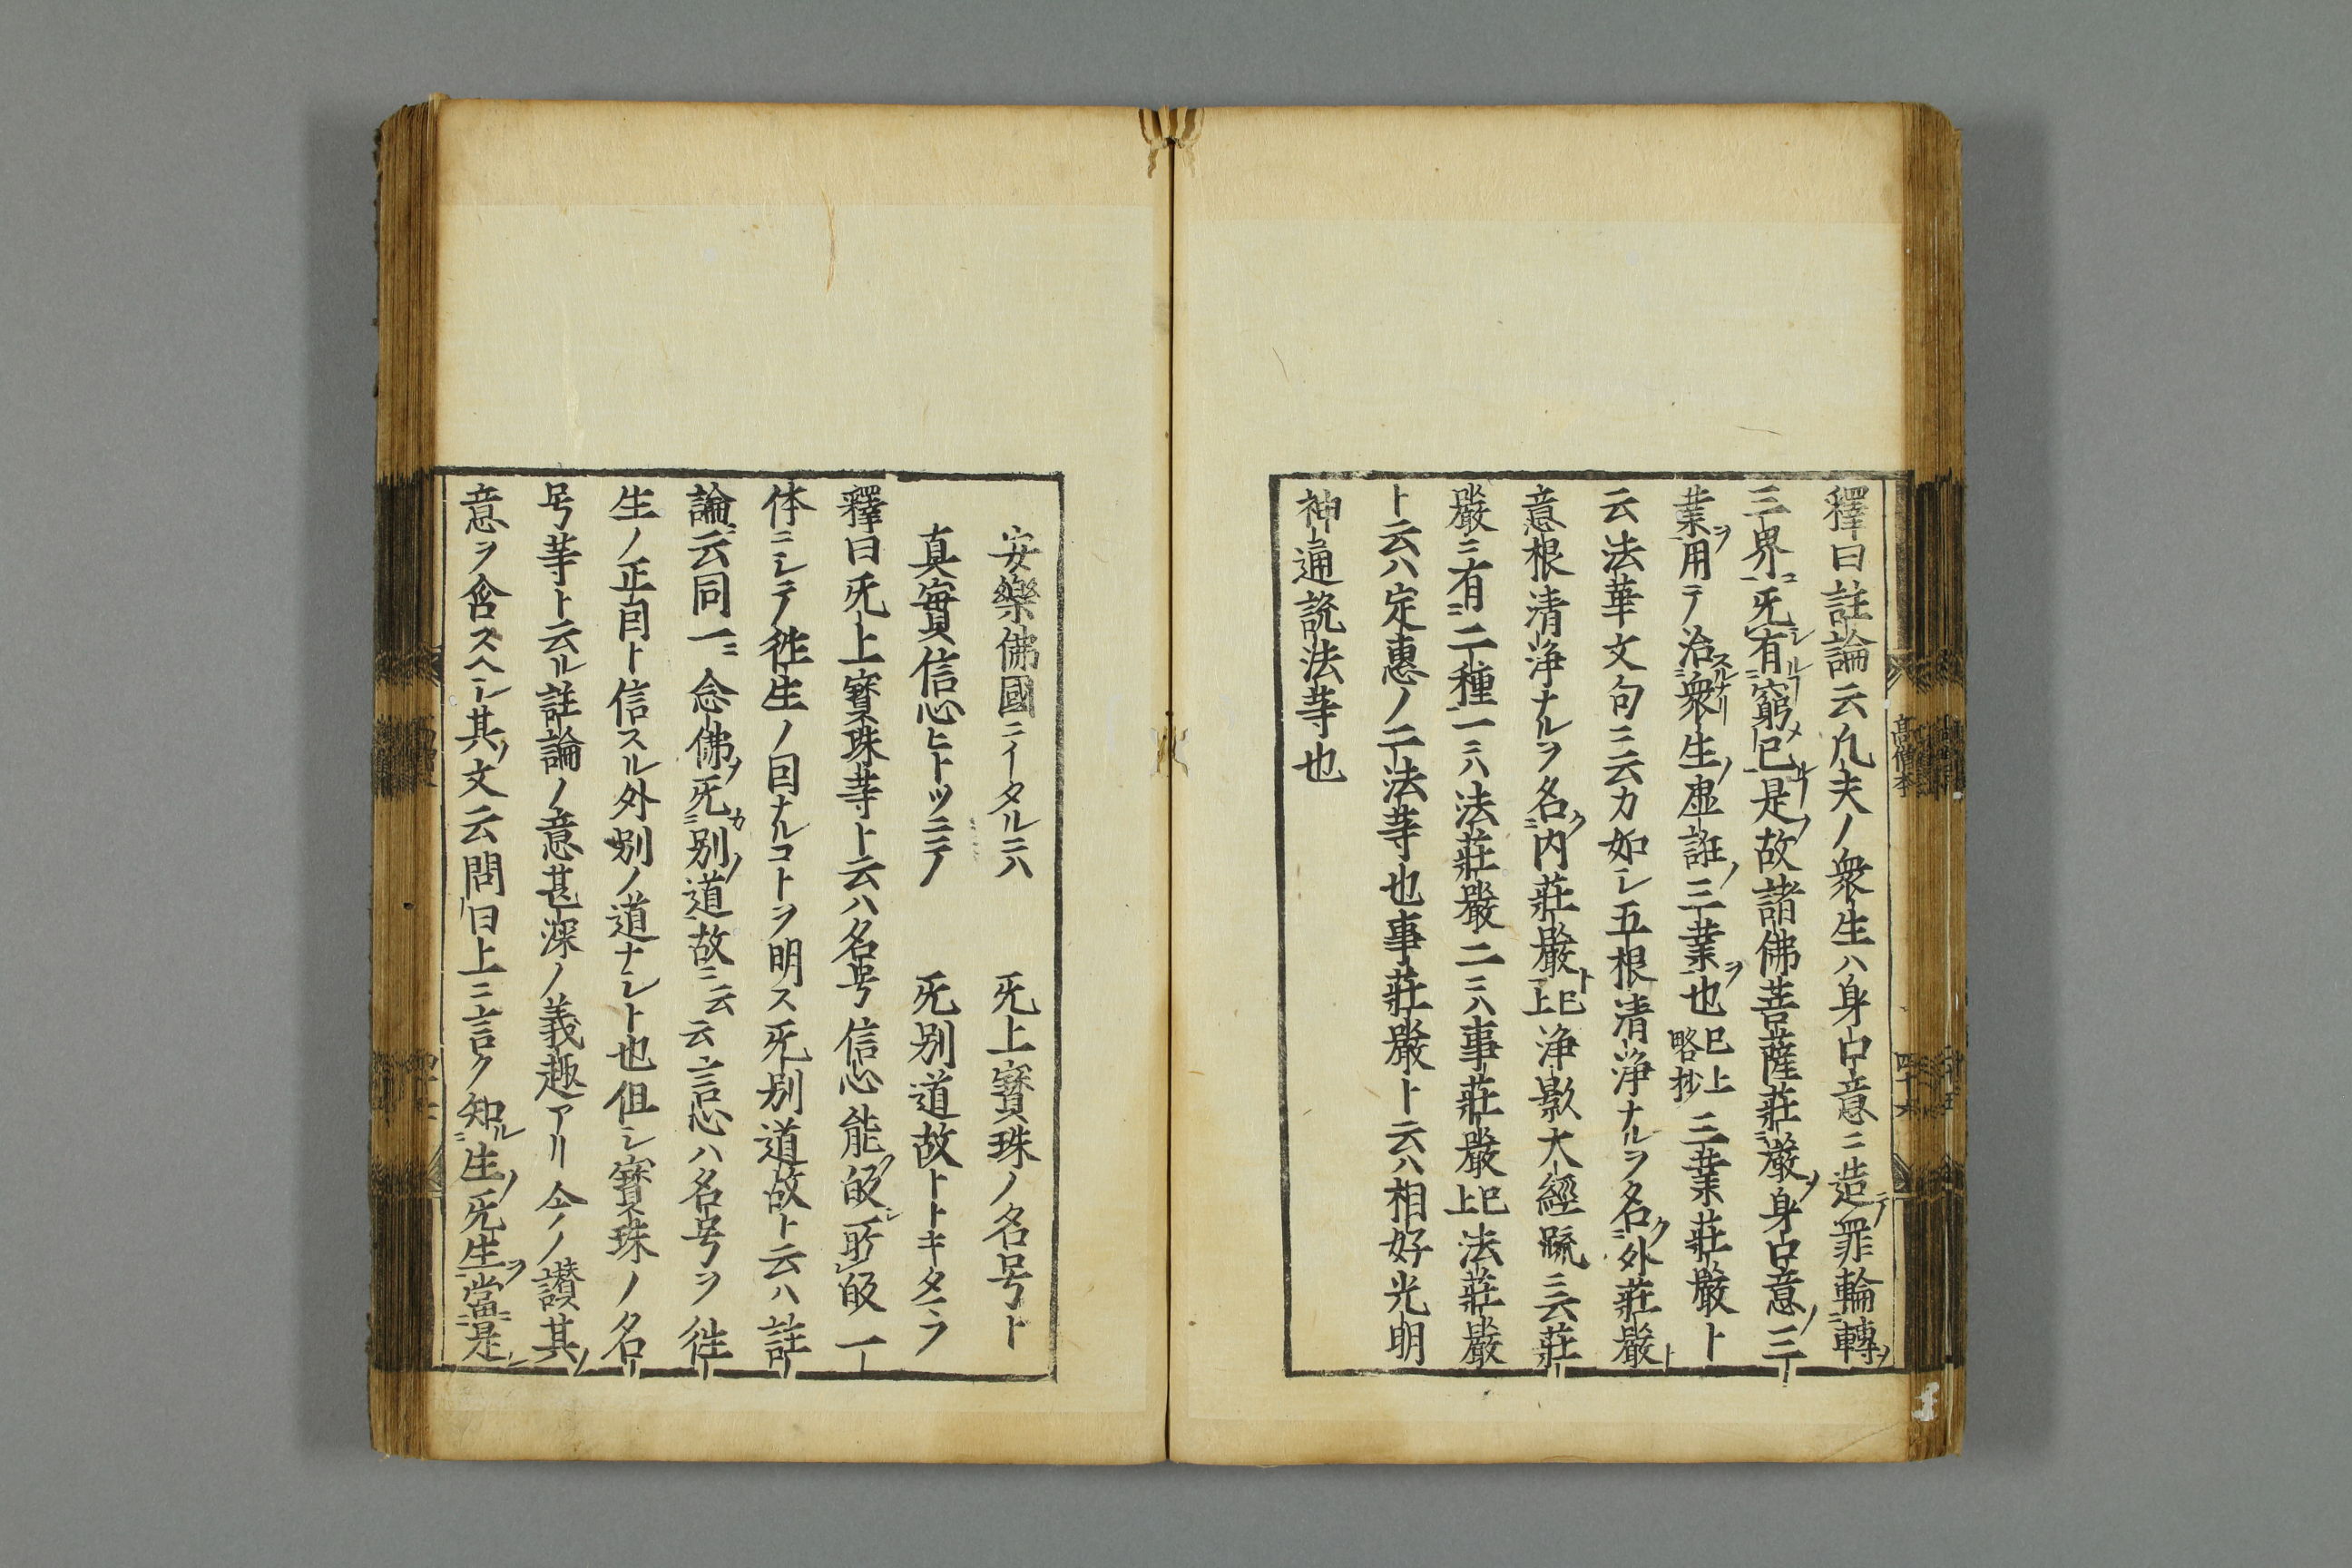 釋曰註論云凢夫ノ衆生ハ身口意ニ造テ罪輪轉ノ
三界ニ旡有ルヿ窮メ已ルヿ是ノ故諸佛菩薩莊嚴ノ身口意ノ三
業ヲ用テ治スルナリ衆生ノ虚誑ノ三業ヲ也已上略抄三業莊嚴ト
云法華文句ニ云カ如シ五根清浄ナルヲ名ク外莊嚴ト
意根清浄ナルヲ名ク内莊嚴ト已上浄影大經䟽ニ云莊
嚴ニ有二種一ニハ法莊嚴二ニハ事莊嚴已上法莊嚴
ト云ハ定惠ノ二法䒭也事莊嚴ト云ハ相好光明
神通説法䒭也
安樂佛國ニイタルニハ 旡上寳珠ノ名号ト
真實信心ヒトツニテ 旡别道故トトキタマフ
釋曰旡上寳珠䒭ト云ハ名号信心能㱕所㱕一
体ニシテ徃生ノ因ナルコトヲ明ス旡别道故ト云ハ註
論ニ云同一ニ念佛ノ旡カ别ノ道故ニ云云言心ハ名号ヲ徃
生ノ正因ト信スル外别ノ道ナシト也但シ寳珠ノ名
号䒭ト云ル註論ノ意甚深ノ義趣アリ今ノ讃其ノ
意ヲ含スヘシ其ノ文云問曰上ニ言ク知ル生ノ旡生ヲ當是
髙僧李
四十六